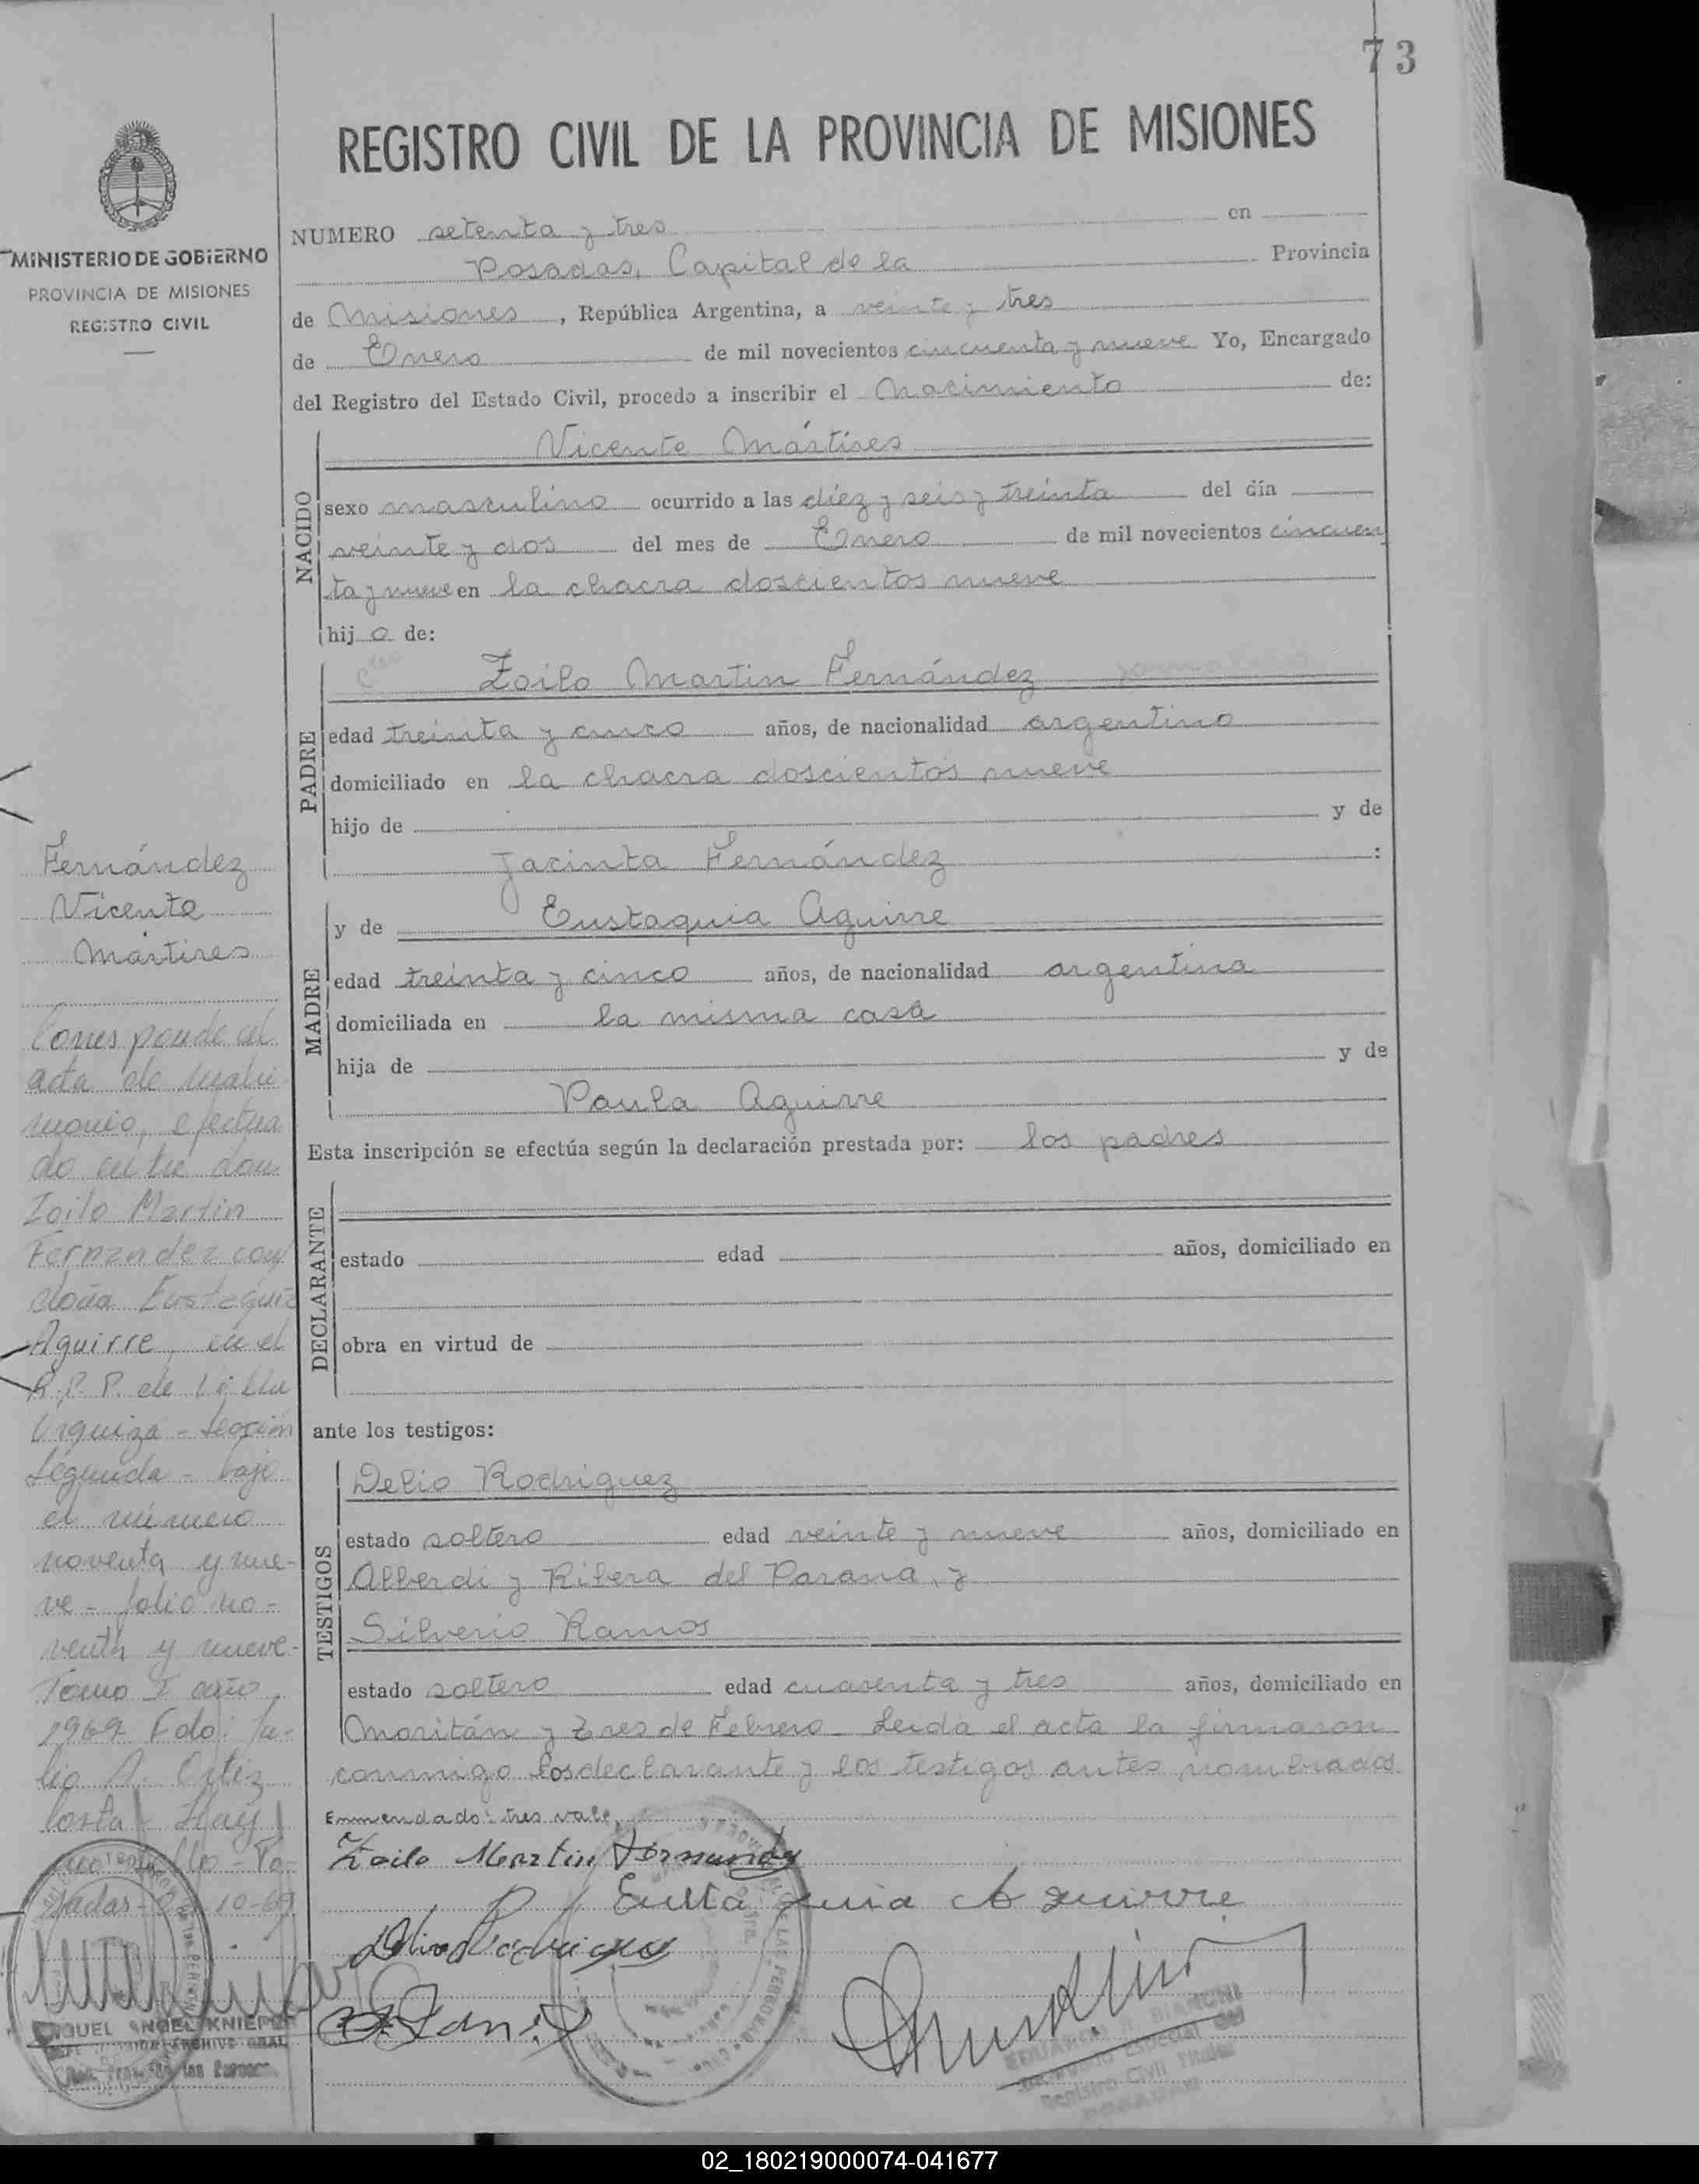 73
REGISTRO CIVIL DE LA PROVINCIA DE MISIONES
MINISTERIO DE GOBIERNO
PROVINCIA DE MISIONES
REGISTRO CIVIL
NUMERO setenta y tres en
Posadas, Capital de la Provincia
de Misiones, República Argentina, a veinte y tres
de Enero de mil novecientos cincuenta y nueve Yo, Encargado
del Registro del Estado Civil, procedo a inscribir el Nacimiento de:
NACIDO
Vicente Mártires
sexo masculino ocurrido a las diez y seis y treinta del día
veinte y dos del mes de Enero de mil novecientos cincuen
ta y nueve en la chacra doscientos nueve
hijo de:
PADRE
Zoilo Martin Fernández
edad treinta y cinco años, de nacionalidad argentino
domiciliado en la chacra doscientos nueve
hijo de y de
Jacinta Fernández :
MADRE
y de Eustaquia Aguirre
edad treinta y cinco años, de nacionalidad argentina
domiciliada en la misma casa
hija de y de
Paula Aguirre
Esta inscripción se efectúa según la declaración prestada por: los padres
DECLARANTE
estado edad años, domiciliado en
obra en virtud de
ante los testigos:
TESTIGOS
Delio Rodriguez
estado soltero edad veinte y nueve años, domiciliado en
Alberdi y Ribera del Parana, y
Silverio Ramos
estado soltero edad cuarenta y tres años, domiciliado en
Moritán y Tres de Febrero - Leida el acta la firmaron
conmigo los declarante y los testigos antes nombrados
Enmendado: tres vale,
Zoilo Martin
Eustaquia Aguirre
Fernández
Vicente
Mártires
Corresponde al
acta de matri
monio, efectua
do entre don
Zoilo Martin
Fernandez con
doña Eustaquia
Aguirre, en el
R.P.P. de Villa
Urquiza - Sección
Segunda - bajo
el número
noventa y nue-
ve - folio no-
venta y nueve -
Tomo I año
1969 Fdo: Ju-
lio A. Ortiz
Hay
10-69
MIGUEL ANGEL KNIEPER
EDUARDO BIANCHI
Registro Civil Titular
02_180219000074-041677